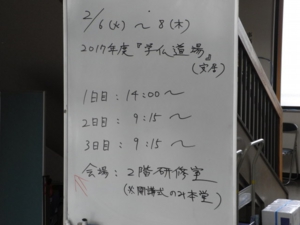 2/6(火)～8(木)
2017年度『学仏道場』
(安居)
1日目：14:00～
2日目：9:15～
3日目：9:15～
会場：2階研修室
(※開講式のみ本堂)